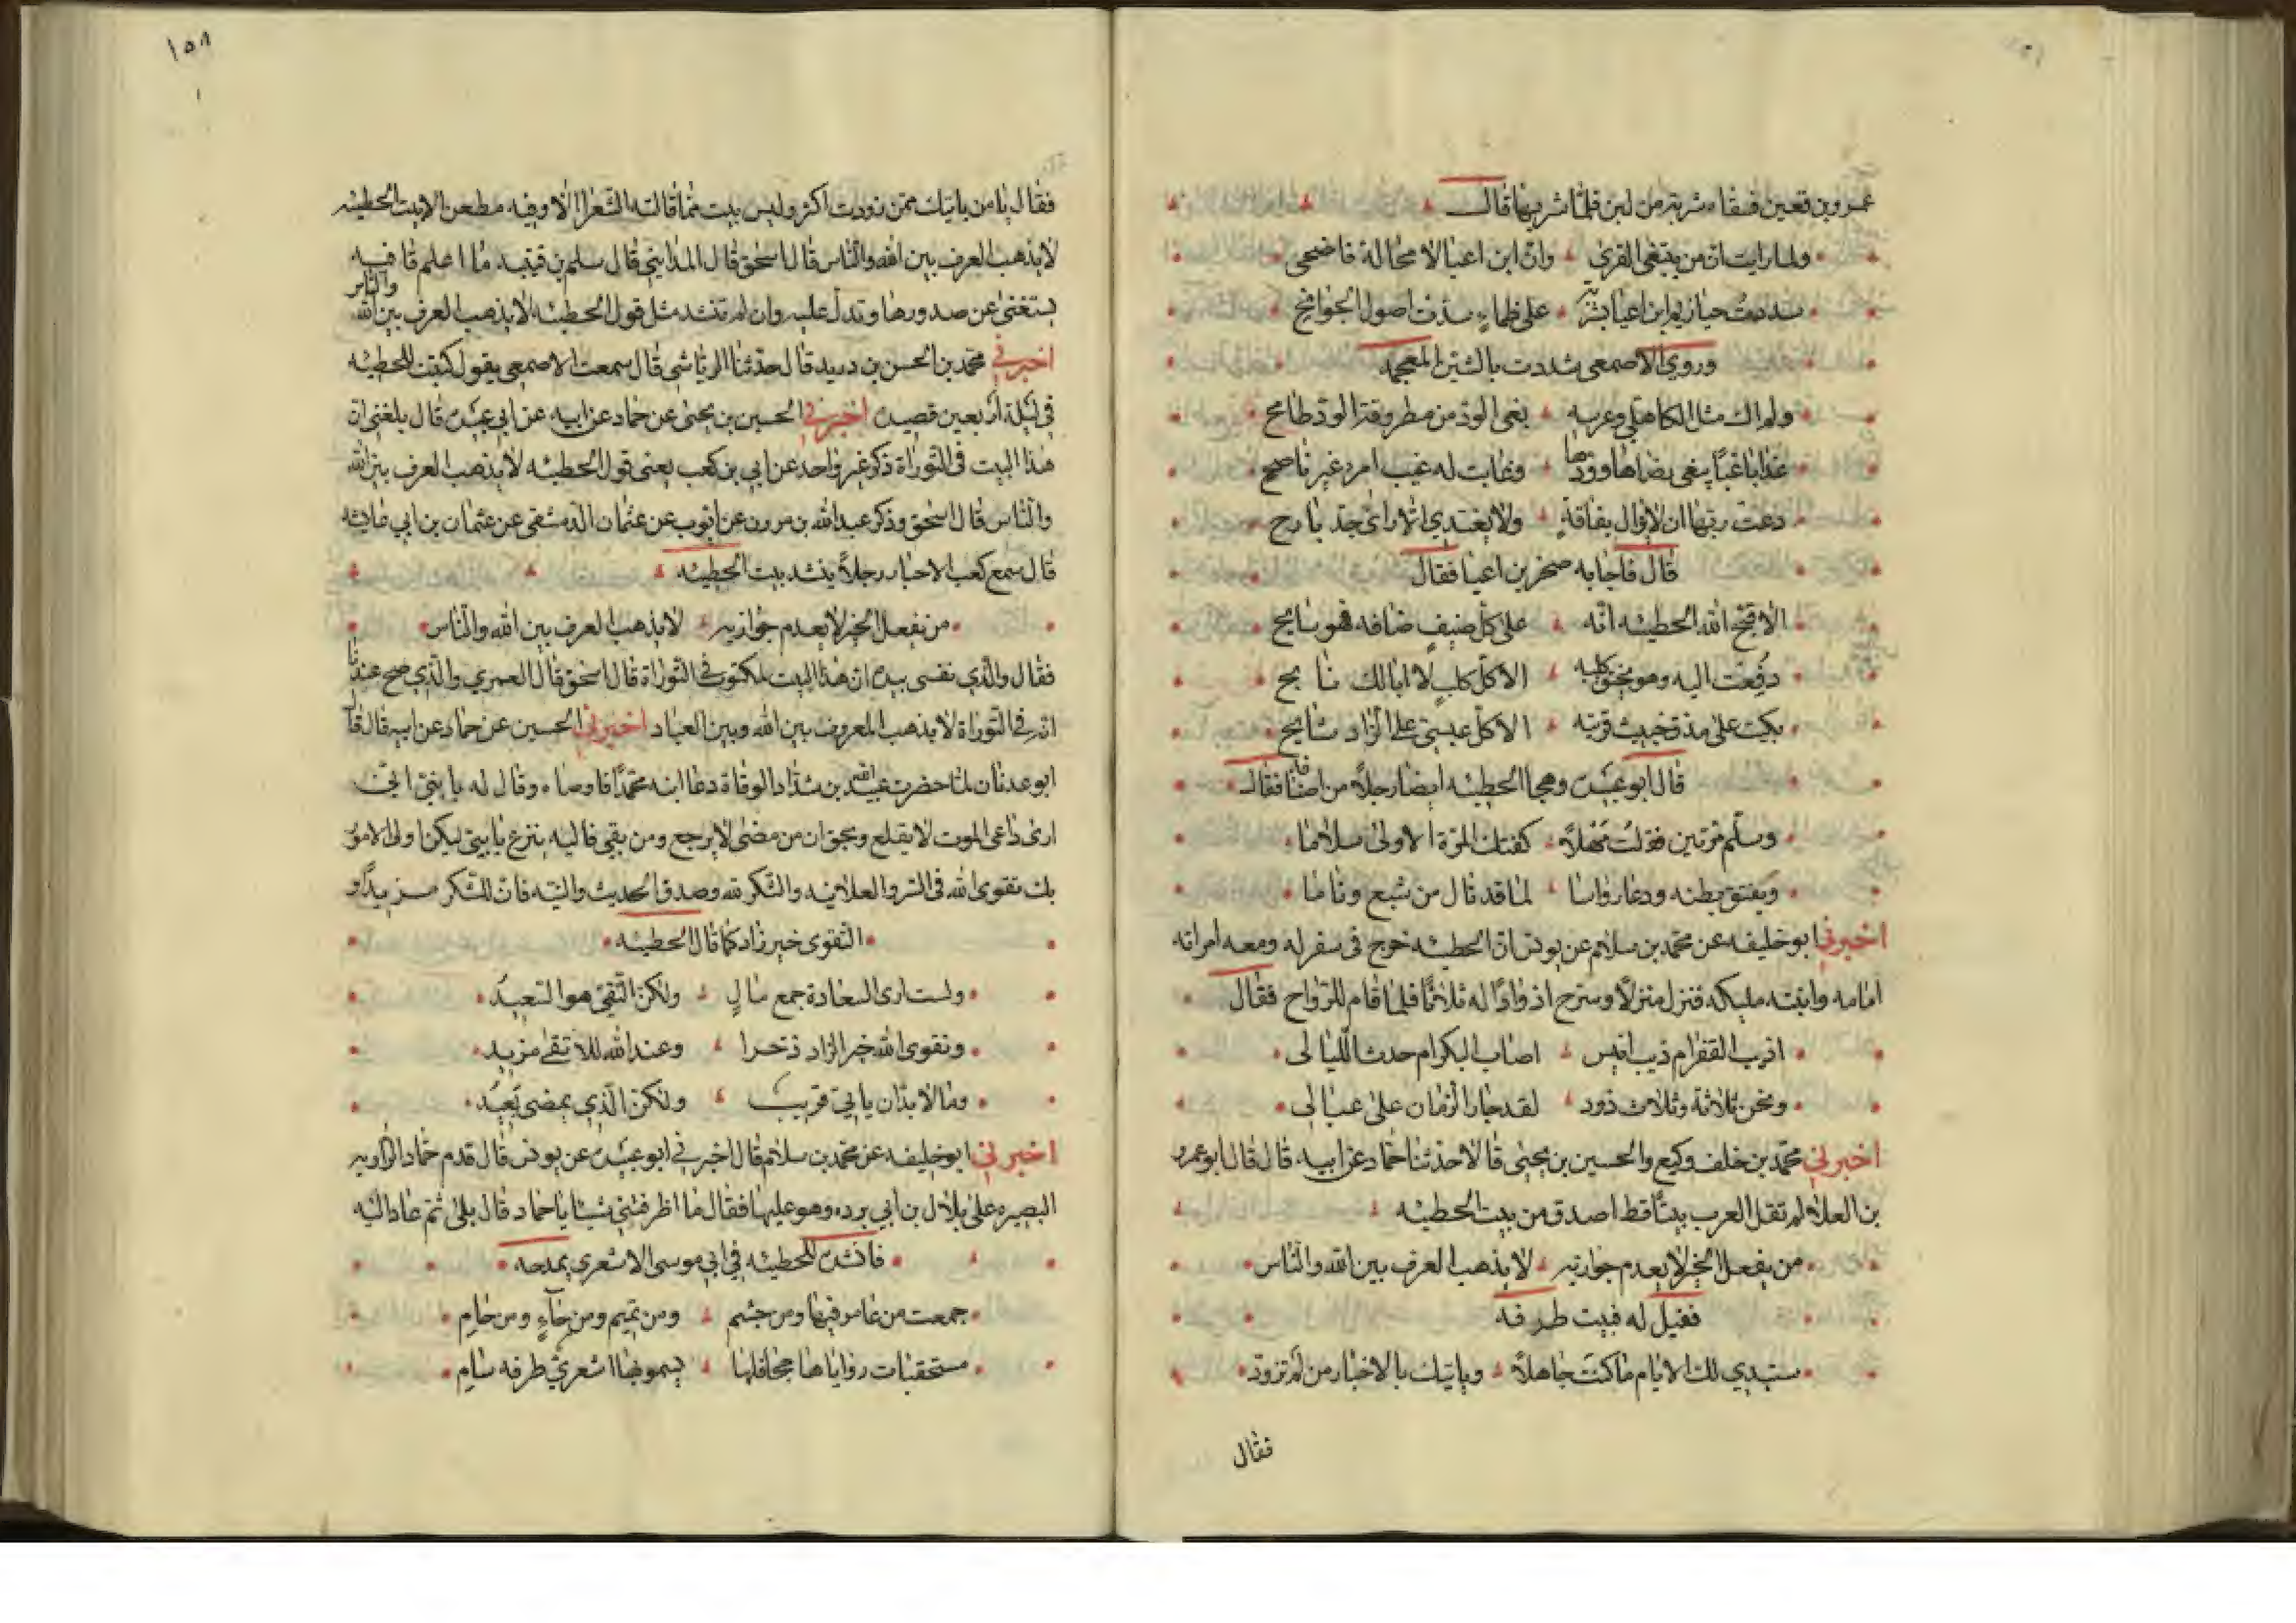 عمرو بن قعين فسقاه شربة من لبن فلما شربها قال
ولما رايت ان من يبتغى القرى وان ابن اعيا لا محالة فاضحى
سددت حيازيم ابن اعيا بشربة على ظماء سدت اصول الجوانح
وروى الاصمعى شددت بالشين المعجمه
ولم ار مثل الكاهلى وعرسه بغى الود من مطروفة الود طامح
غدا باغيا يبغى رضاها وودها وغابت له غيب امرء غير ناصح
دعت ربها ان لا يزال بفاقة ولا يغتدى الا راى حد بارح
قال فاجابه صخر بن اعيا فقال
الا قبح الله الحطيئه انه على كل ضيف ضافه هو سالح
دفعت اليه وهو يخنق كلبه الا كل كلب لا ابا لك نابح
بكيت على مذق خبيث قريته الا كل عبسى على الزاد شايح
قال ابو عبيده وهجا الحطيئه ايضا رجلا من اضيافه فقال
وسلم مرتين فقلت مهلا كفتك المرة الاولى سلاما
ونقنق بطنه ودعا رواسا لما قد نال من شبع وناما
اخبرنى ابو خليفه عن محمد بن سلام عن يونس ان الحطيئه خرج فى سفر له ومعه امراته
امامه وابنته مليكه فنزل منزلا وسرح اذوادا له ثلاثا فلما قام للرواح فقال
اذيب القفر ام ذيب انيس اصاب البكر ام حدث الليالى
ونحن ثلاثة وثلاث ذود لقد جار الزمان على عيالى
اخبرنى محمد بن خلف وكيع والحسين بن يحيى قالا حدثنا حماد عن ابيه قال قال ابو عمرو
بن العلاء لم تقل العرب بيتا قط اصدق من بيت الحطيئه
من يفعل الخير لا يعدم جوازيه لا يذهب العرف بين الله والناس
فقيل له فبيت طرفه
ستبدي لك الايام ما كنت جاهلا وياتيك بالاخبار من لم تزود
فقال
١٥٨
فقال يا من ياتيك ممن زودت اكثر وليس بيت مما قالته الشعراء الا وفيه مطعن الا بيت الحطيئه
لا يذهب العرف بين الله والناس قال اسحق قال المدايني قال سلم بن قتيبه ما اعلم قافيه
يستغنى عن صدورها وتدل عليه وان لم تنشد مثل قول الحطيئه لا يذهب العرف بين الله والناس
اخبرنى محمد بن الحسن بن دريد قال حدثنا الرياشى قال سمعت الاصمعى يقول كتبت للحطيئه
فى ليلة اربعين قصيده اخبرنى الحسين بن يحيى عن حماد عن ابيه عن ابى عبيده قال بلغنى ان
هذا البيت فى التوراة ذكر غير واحد عن ابي بن كعب يعنى قول الحطيئه لا يذهب العرف بين الله
والناس قال اسحق وذكر عبد الله بن مرون عن ايوب عن عثمان الدمشقى عن عثمان بن ابى عايشه
قال سمع كعب الاحبار رجلا ينشد بيت الحطيئه
من يفعل الخير لا يعدم جوازيه لا يذهب العرف بين الله والناس
فقال والذي نفسى بيده ان هذا البيت لمكتوب فى التوراة قال اسحق قال العمري والذي صح عندنا
انه فى التوراة لا يذهب المعروف بين الله وبين العباد اخبرنى الحسين عن حماد عن ابيه قال قال
ابو عدنان لما حضرت عبيد الله بن شداد الوفاة دعا ابنه محمدا فاوصاه وقال له يا بنى انى
ارى داعى الموت لا يقلع وبحق ان من مضى لا يرجع ومن بقى فاليه ينزع يا بنى ليكن اولى الامور
بك تقوى الله فى السر والعلانيه والشكر لله وصدق الحديث والنيه فان للشكر مزيدا و
التقوى خير زاد كما قال الحطيئه
ولست ارى السعادة جمع مال ولكن التقى هو السعيد
وتقوى الله خير الزاد ذخرا وعند الله للاتقى مزيد
وما لا بد ان ياتى قريب ولكن الذي يمضى بعيد
اخبرنى ابو خليفه عن محمد بن سلام قال اخبرنى ابو عبيده عن يونس قال قدم حماد الراويه
البصره على بلال بن ابي برده وهو عليها فقال ما اطرفتنى شيئا يا حماد قال بلى ثم عاد اليه
فانشده للحطيئه في ابي موسى الاشعري يمدحه
جمعت من عامر فيها ومن جشم ومن تميم ومن حاء ومن حام
مستحقبات رواياها جحافلها يسمو بها اشعري طرفه سام